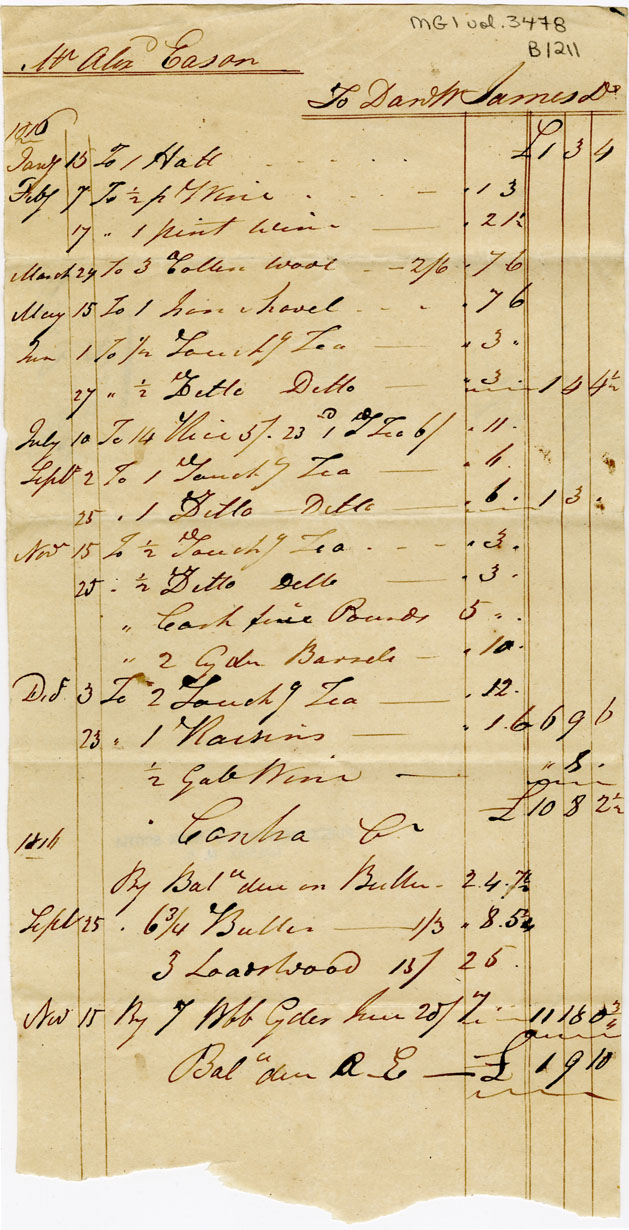 MG1 vol. 3478
B1211
Mr Alexr Eason
To Danl W James Dr
1816
Jany 15 To 1 Hatt £1 3 4
Feby 7 To ½ p Wine . 1 3
17 " 1 pint Wine . 2 1½
March 29 To 3 Wool 2/6 . 7 6
May 15 To 1 Iron Shovel . 7 6
Jun 1 To ½ Tea " 3 "
27 " ½ Ditto Ditto " 3 1 4 4½
July 10 To 14 Rice 3/. 23 1 Tea 6/ . 11 .
Septr 2 To 1 Tea . 6
25 . 1 Ditto Ditto . 6 . 1 3 .
Novr 15 To ½ Tea . 3 .
25 . ½ Ditto Ditto . 3 .
" Cash five Pounds 5 " .
" 2 Cyder Barrels . 10 .
Decr 3 To 2 Tea . 12 .
23 " 1 Raisins . 1.6 6 9 6
½ Gal Wine " 8 .
£10 8 2½
1816 Contra Cr
By Bale due on Butter 2.4.7½
Septr 25 . 6¾ Butter 1/3 . 8.5¼
3 Loads Wood 15/ 2 5 .
Nov 15 By 7 Cyder 20/ 7 11 18 0¾
Bale due A E £ 1 9 10